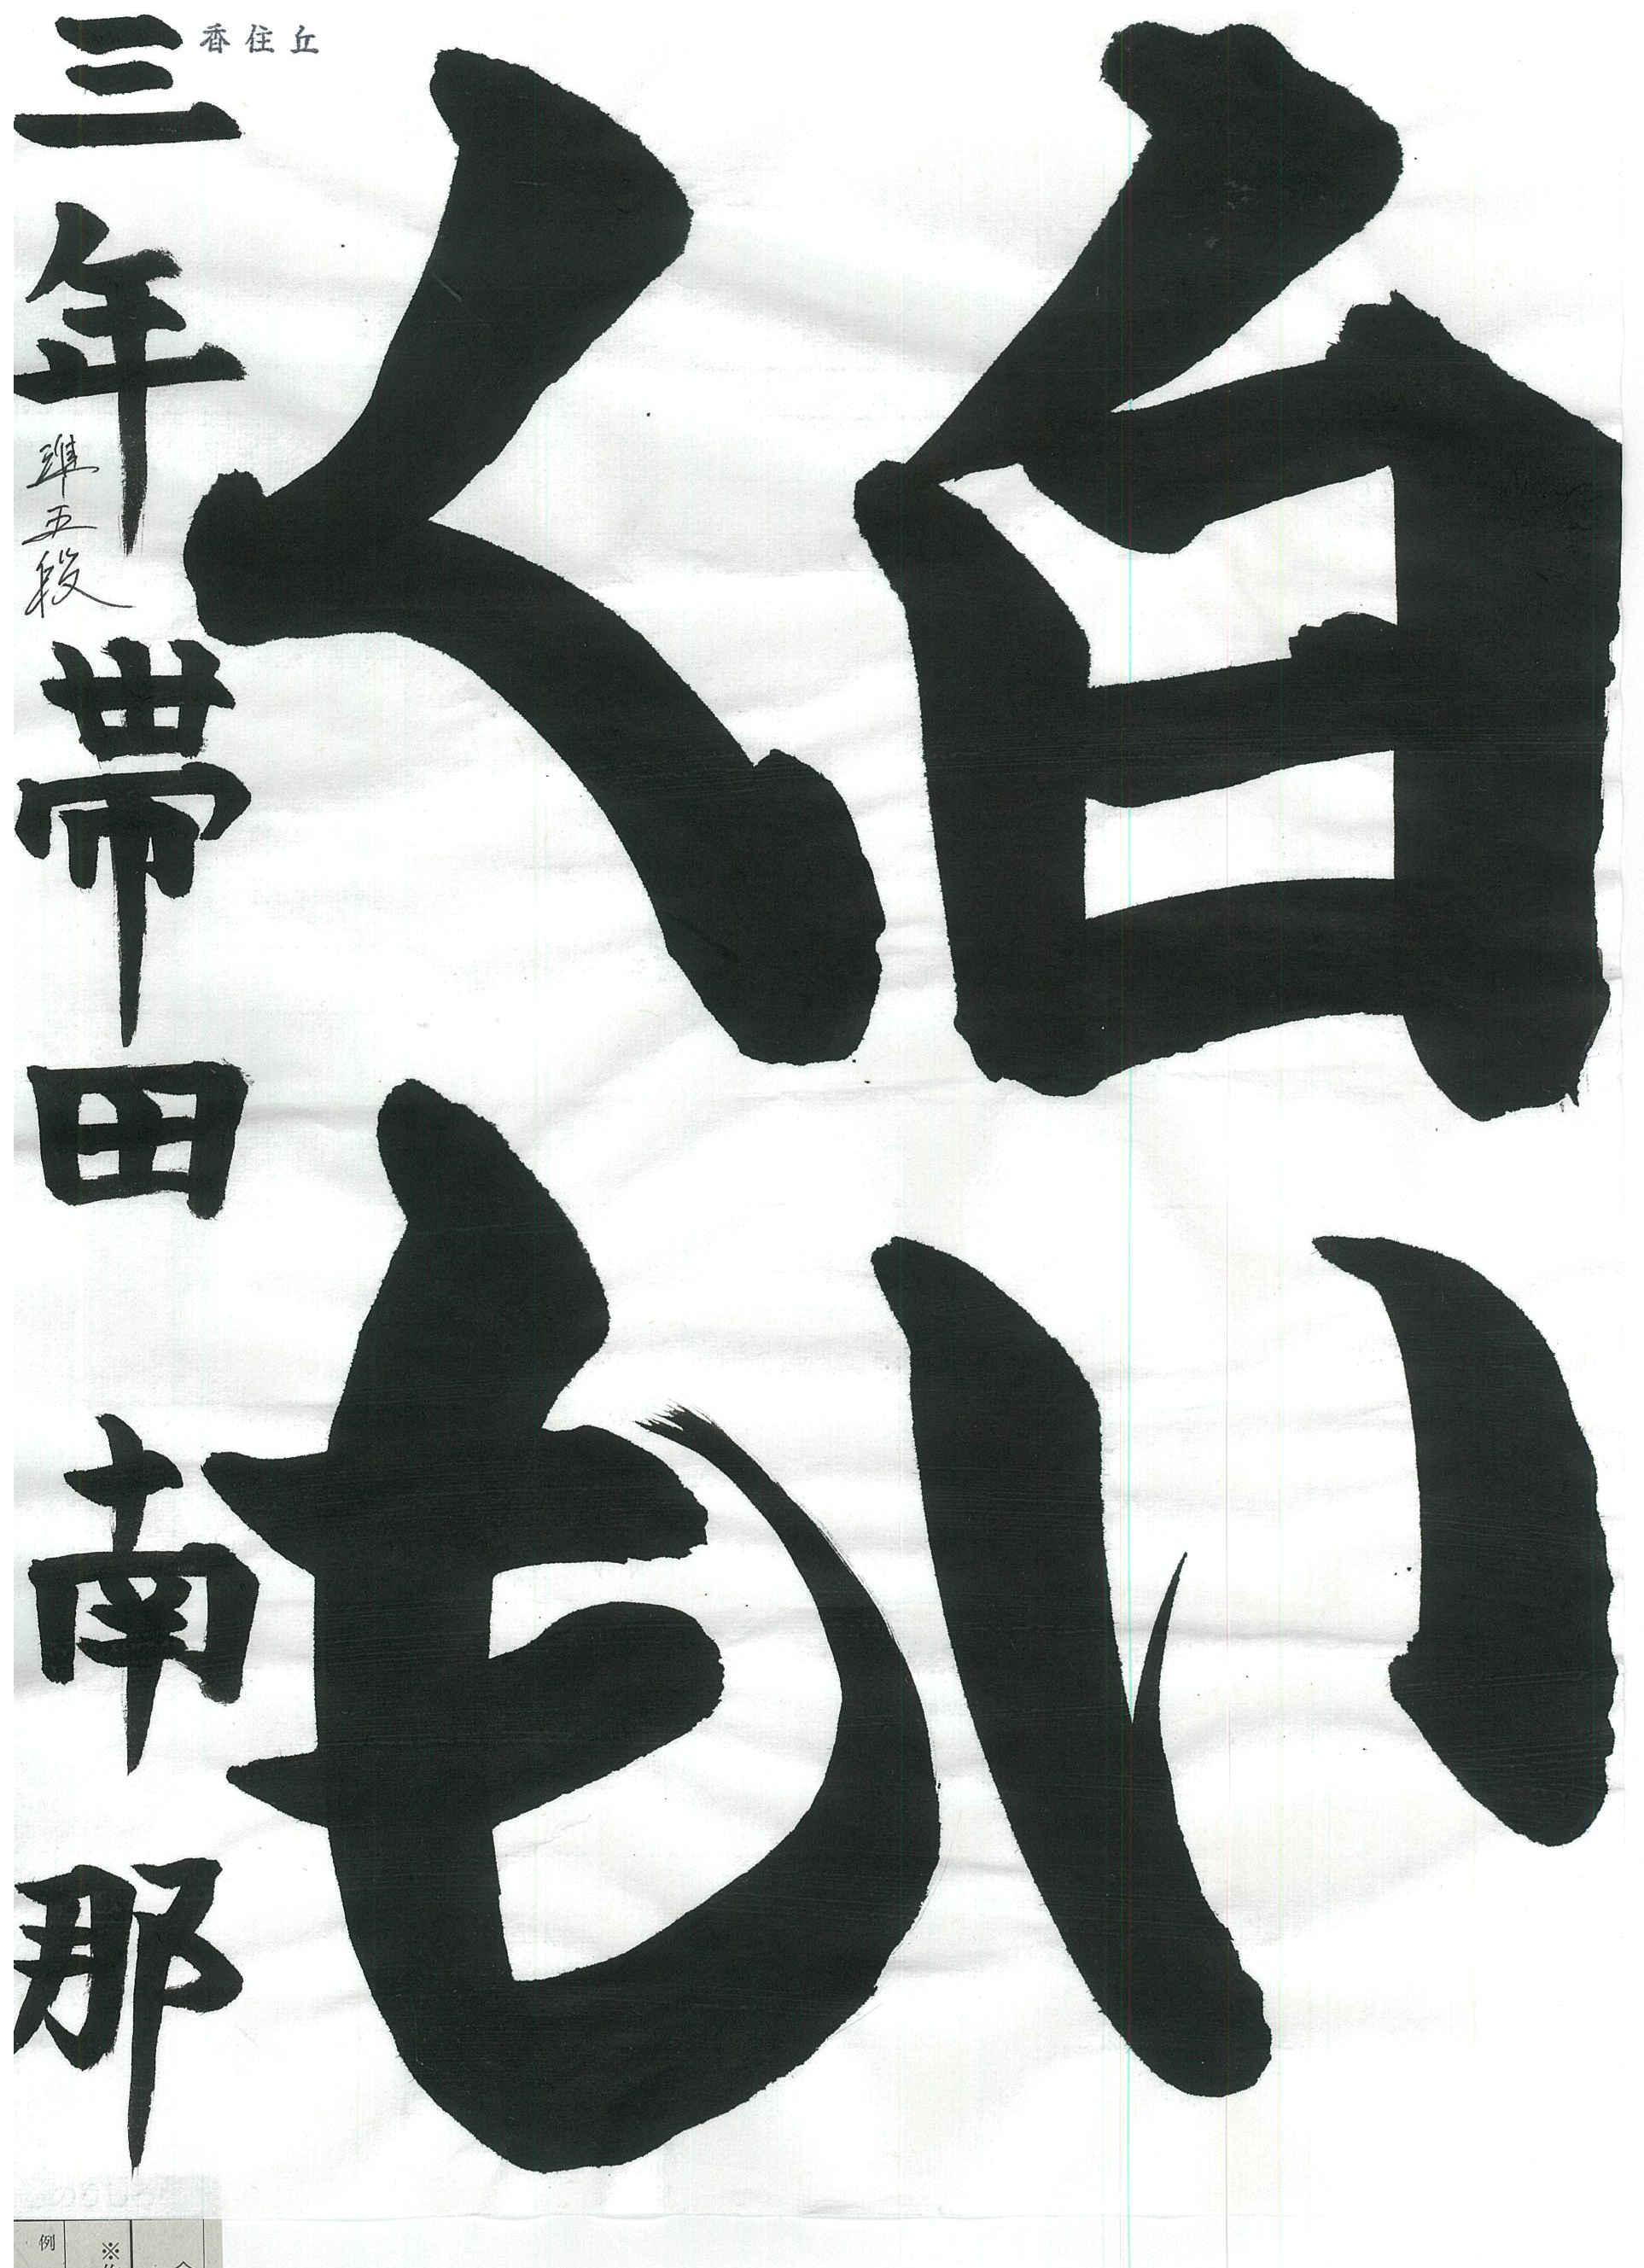 白い
くも
香住丘
三年 帯田 南那
準五段
例
※